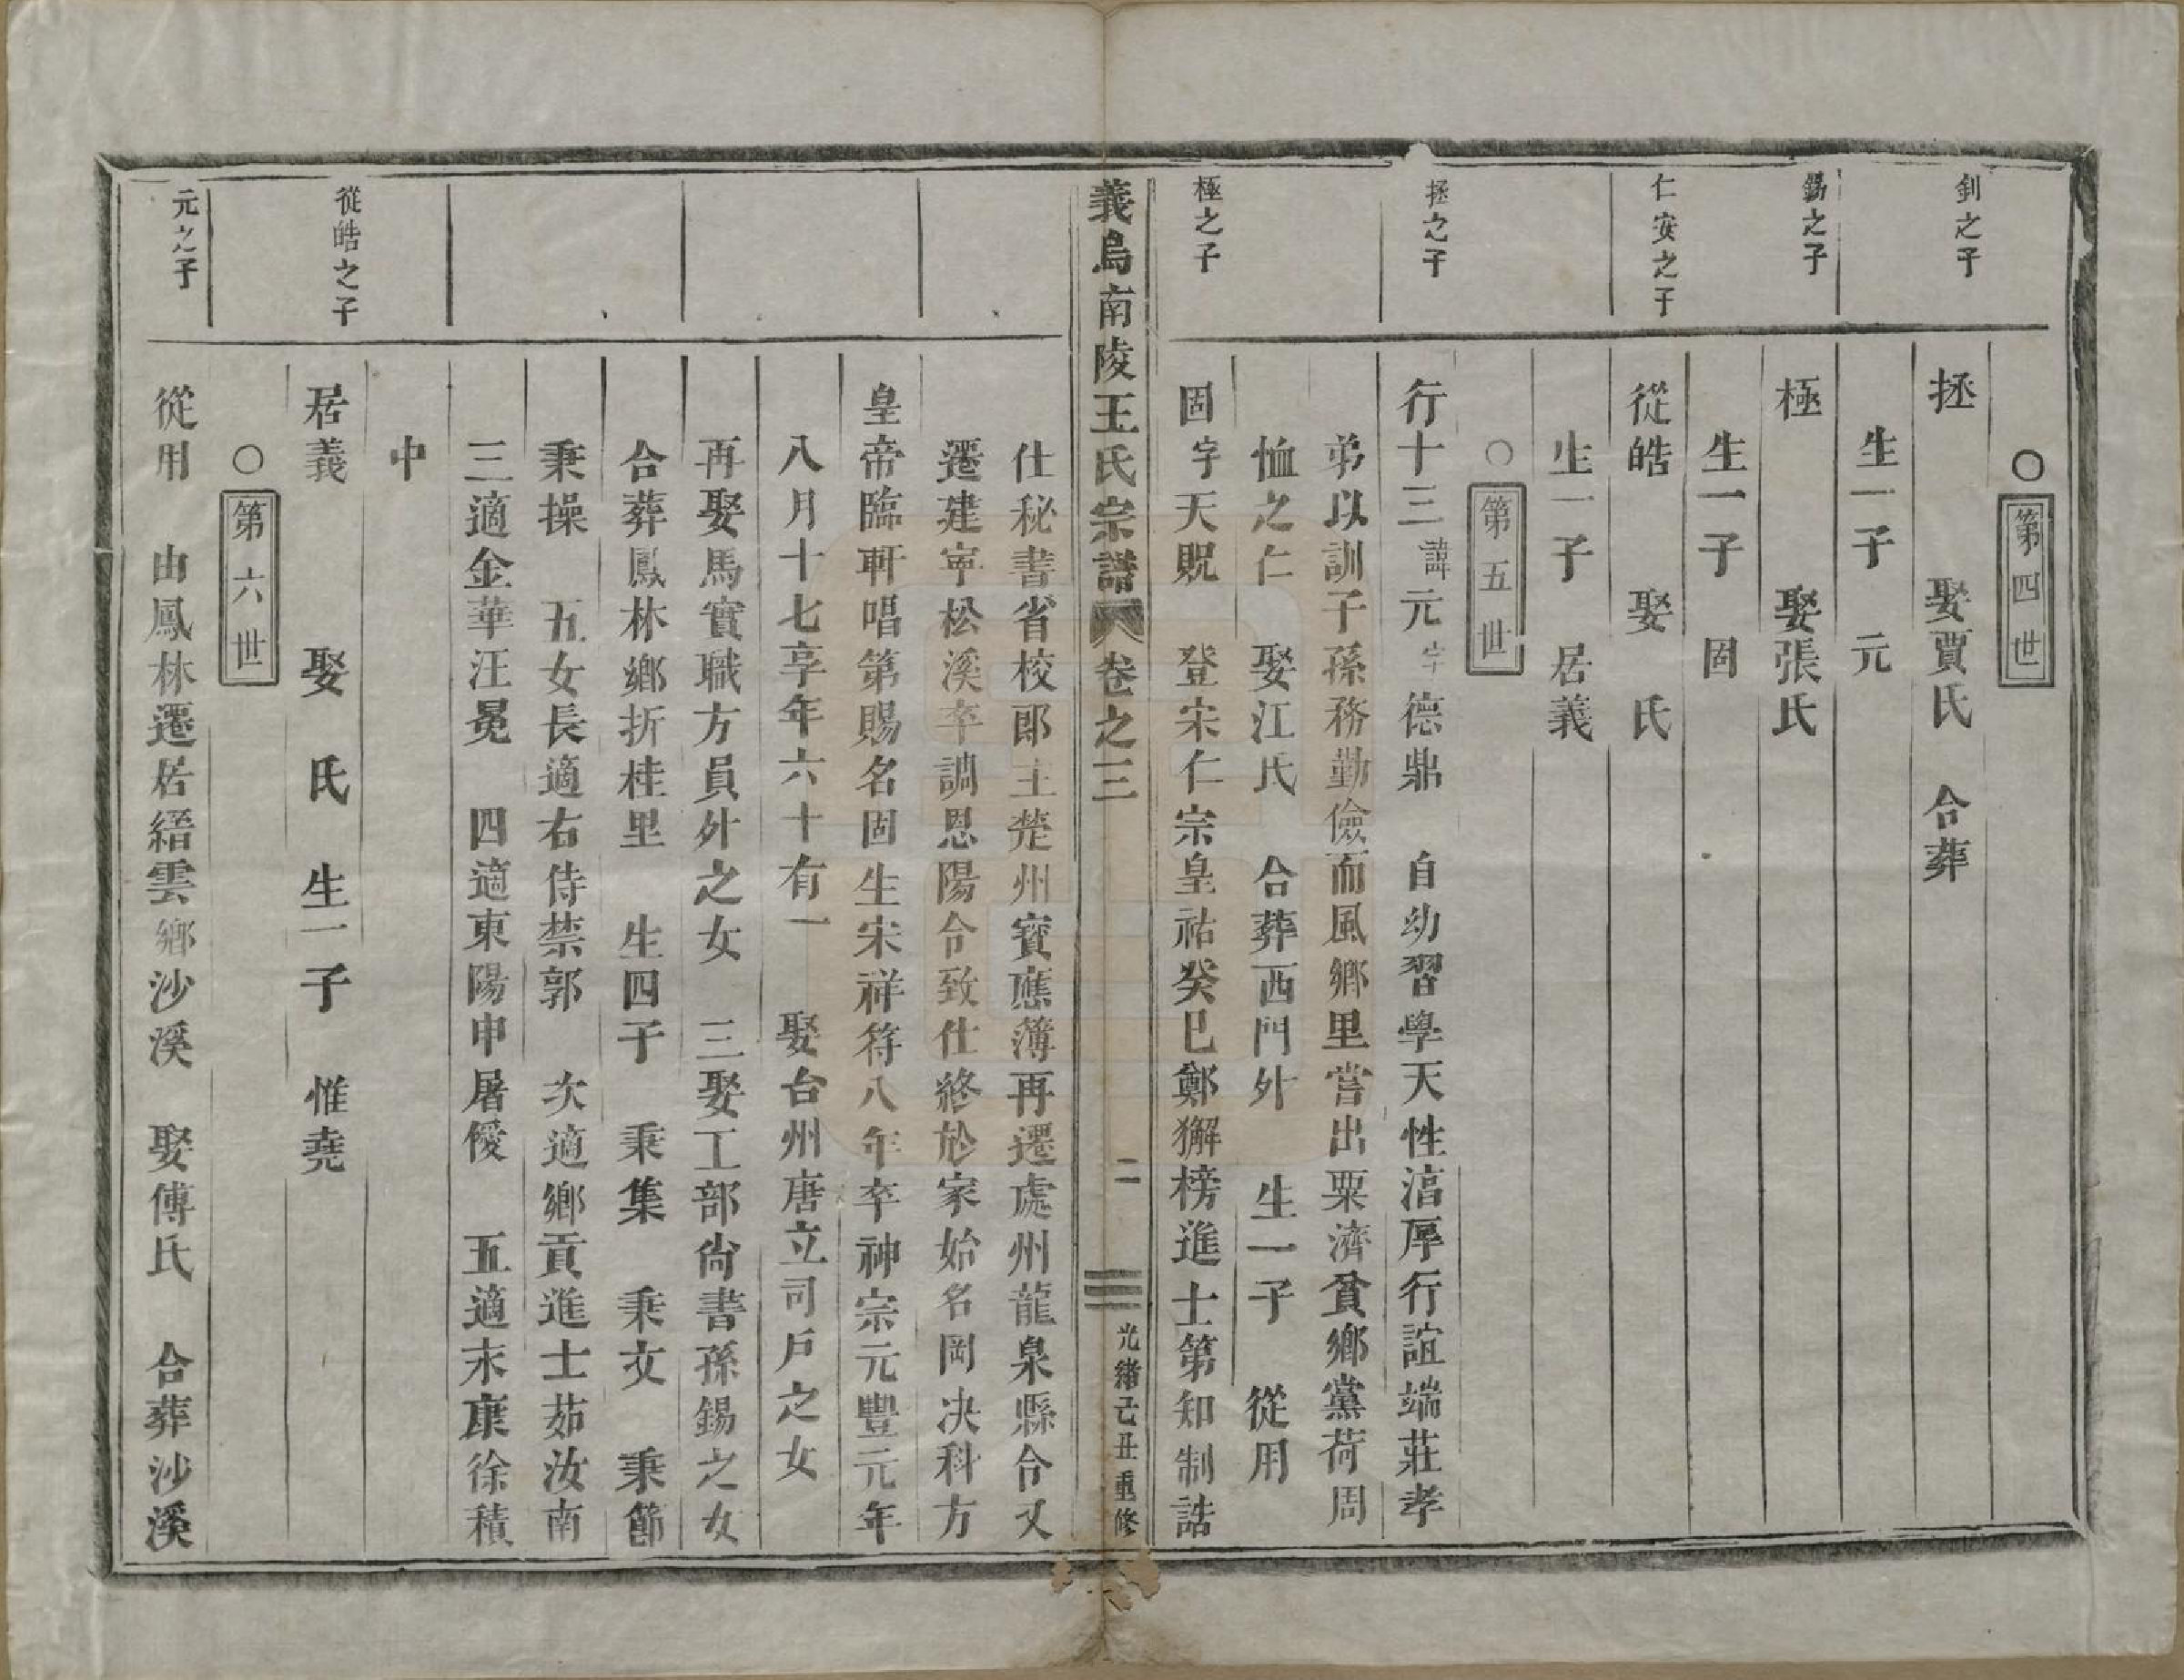 ○第四世
釗之子
拯　娶賈氏　合葬
生一子　元
錫之子
極　娶張氏
生一子　固
仁安之子
從皓　娶　氏
生一子　居義
○第五世
拯之子
行十三諱元字德鼎　自幼習學天性湻厚行誼端莊孝
弟以訓子孫務勤儉而風鄉里嘗出粟濟貧鄉黨荷周
恤之仁　娶江氏　合葬西門外　生一子　從用
極之子
固字天貺　登宋仁宗皇祐癸巳鄭獬榜進士第知制誥
義烏南陵王氏宗譜　卷之三　二　光緒己丑重修
仕秘書省校郎主楚州寳應簿再遷處州龍泉縣令又
遷建寧松溪卒調恩陽令致仕終於家始名岡決科方
皇帝臨軒唱第賜名固生宋祥符八年卒神宗元豐元年
八月十七享年六十有一　娶台州唐立司戶之女
再娶馬實職方員外之女　三娶工部尙書孫錫之女
合葬鳳林鄉折桂里　生四子　秉集　秉文　秉節
秉操　五女長適右侍禁郭　次適鄉貢進士茹汝南
三適金華汪冕　四適東陽申屠優　五適永康徐積
中
從皓之子
居義　娶　氏　生一子　惟堯
○第六世
元之子
從用　由鳳林遷居縉雲鄉沙溪　娶傅氏　合葬沙溪